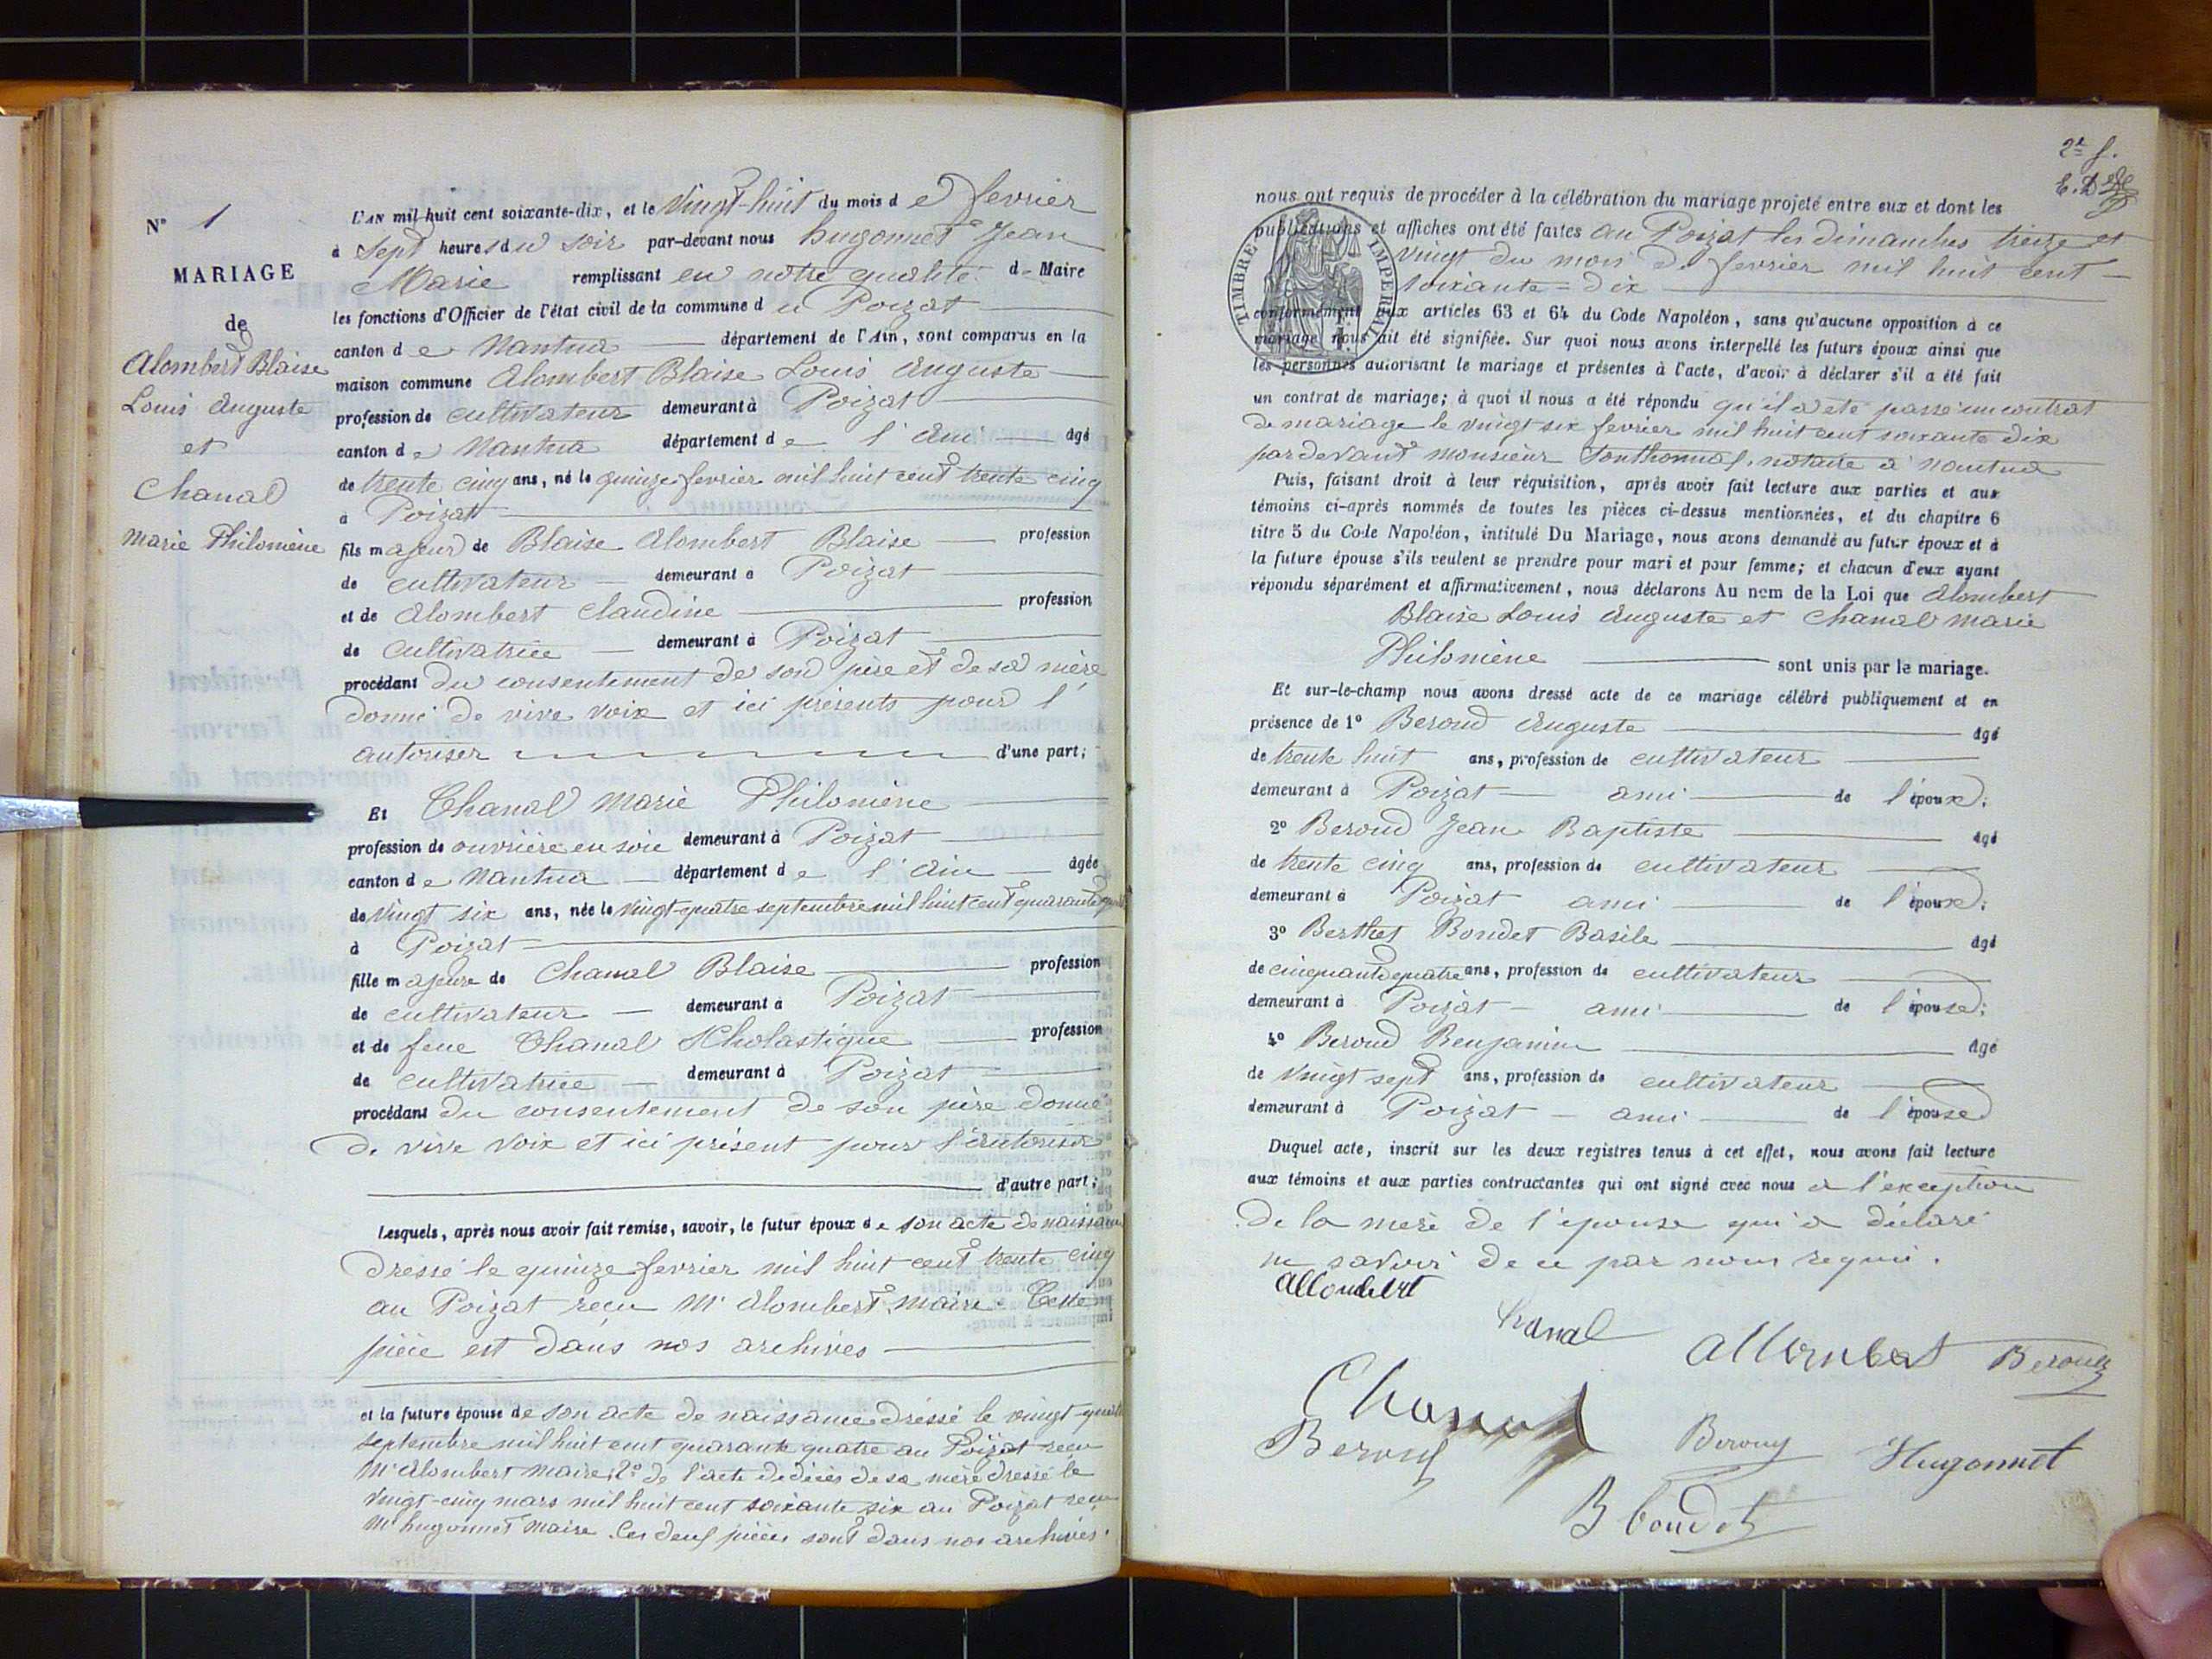 N° 1
MARIAGE
de
Alombert Blaise
Louis Auguste
et
Chanal
Marie Philomène
L'AN mil huit cent soixante-dix, et le vingt-huit du mois d e fevrier
à sept heures du soir par-devant nous hugonnet Jean
Marie remplissant en notre qualité d - Maire
les fonctions d'Officier de l'état civil de la commune d u Poizat
canton d e Nantua département de l'Ain, sont comparus en la
maison commune Alombert Blaise Louis Auguste
profession de cultivateur demeurant à Poizat
canton d e Nantua département d e l'Ain âgé
de trente cinq ans, né le quinze fevrier mil huit cent trente cinq
à Poizat
fils majeur de Blaise Alombert Blaise profession
de cultivateur demeurant à Poizat
et de Alombert Claudine profession
de cultivatrice demeurant à Poizat
procédant du consentement de son père et de sa mère
donné de vive voix et ici présents pour l'
autoriser d'une part;
Et Chanal Marie Philomène
profession de ouvrière en soie demeurant à Poizat
canton d e Nantua département d e l'Ain âgée
de vingt six ans, née le vingt-quatre septembre mil huit cent quarante quatre
à Poizat
fille majeure de Chanal Blaise profession
de cultivateur demeurant à Poizat
et de feue Chanal Scholastique profession
de cultivatrice demeurant à Poizat
procédant du consentement de son père donné
de vive voix et ici présent pour l'autoriser
d'autre part;
Lesquels, après nous avoir fait remise, savoir, le futur époux de son acte de naissance
dressé le quinze fevrier mil huit cent trente cinq
au Poizat reçu Mr Alombert maire. Cette
pièce est dans nos archives
et la future épouse de son acte de naissance dressé le vingt-quatre
septembre mil huit cent quarante quatre au Poizat reçu
Mr Alombert maire, 2° de l'acte de décès de sa mère dressé le
vingt-cinq mars mil huit cent soixante six au Poizat reçu
Mr hugonnet maire. Ces deux pièces sont dans nos archives.
2e f.
nous ont requis de procéder à la célébration du mariage projeté entre eux et dont les
publications et affiches ont été faites au Poizat les dimanches treize et
vingt du mois de fevrier mil huit cent
soixante-dix
TIMBRE IMPERIAL
conformément aux articles 63 et 64 du Code Napoléon, sans qu'aucune opposition à ce
mariage nous ait été signifiée. Sur quoi nous avons interpellé les futurs époux ainsi que
les personnes autorisant le mariage et présentes à l'acte, d'avoir à déclarer s'il a été fait
un contrat de mariage; à quoi il nous a été répondu qu'il a été passé un contrat
de mariage le vingt six fevrier mil huit cent soixante dix
par devant monsieur notaire à nantua
Puis, faisant droit à leur réquisition, après avoir fait lecture aux parties et aux
témoins ci-après nommés de toutes les pièces ci-dessus mentionnées, et du chapitre 6
titre 5 du Code Napoléon, intitulé Du Mariage, nous avons demandé au futur époux et à
la future épouse s'ils veulent se prendre pour mari et pour femme; et chacun d'eux ayant
répondu séparément et affirmativement, nous déclarons Au nom de la Loi que Alombert
Blaise Louis Auguste et Chanal Marie
Philomène sont unis par le mariage.
Et sur-le-champ nous avons dressé acte de ce mariage célébré publiquement et en
présence de 1° Beroud Auguste âgé
de trente huit ans, profession de cultivateur
demeurant à Poizat ami de l'époux;
2° Beroud Jean Baptiste âgé
de trente cinq ans, profession de cultivateur
demeurant à Poizat ami de l'époux;
3° Berthet Bondet Basile âgé
de cinquante quatre ans, profession de cultivateur
demeurant à Poizat ami de l'épouse;
4° Beroud Benjamin âgé
de vingt sept ans, profession de cultivateur
demeurant à Poizat ami de l'épouse
Duquel acte, inscrit sur les deux registres tenus à cet effet, nous avons fait lecture
aux témoins et aux parties contractantes qui ont signé avec nous à l'exception
de la mère de l'épouse qui a déclaré
ne savoir de ce par nous requis.
Allombert
Chanal
Allombert
Beroud
Chanal
Beroud
Beroud
Hugonnet
B boudet